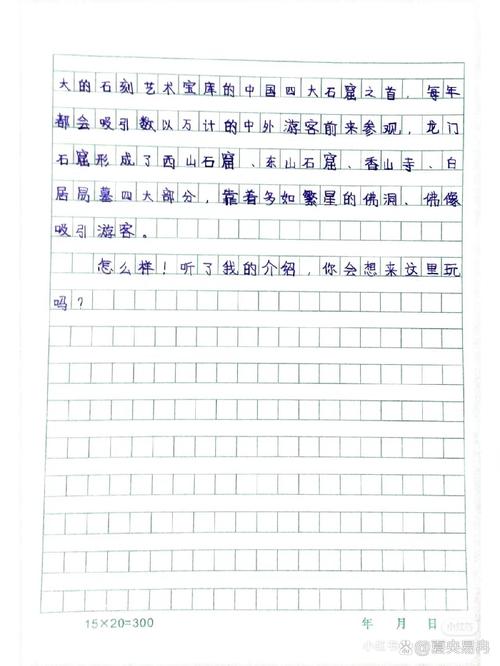 大的石刻艺术宝库的中国四大石窟之首，每年
都会吸引数以万计的中外游客前来参观，龙门
石窟形成了西山石窟、东山石窟、香山寺、白
居局墓四大部分，靠着多如繁星的佛洞、佛像
吸引游客。
怎么样！听了我的介绍，你会想来这里玩
吗？
15×20=300 年 月 日
小红书
小红书